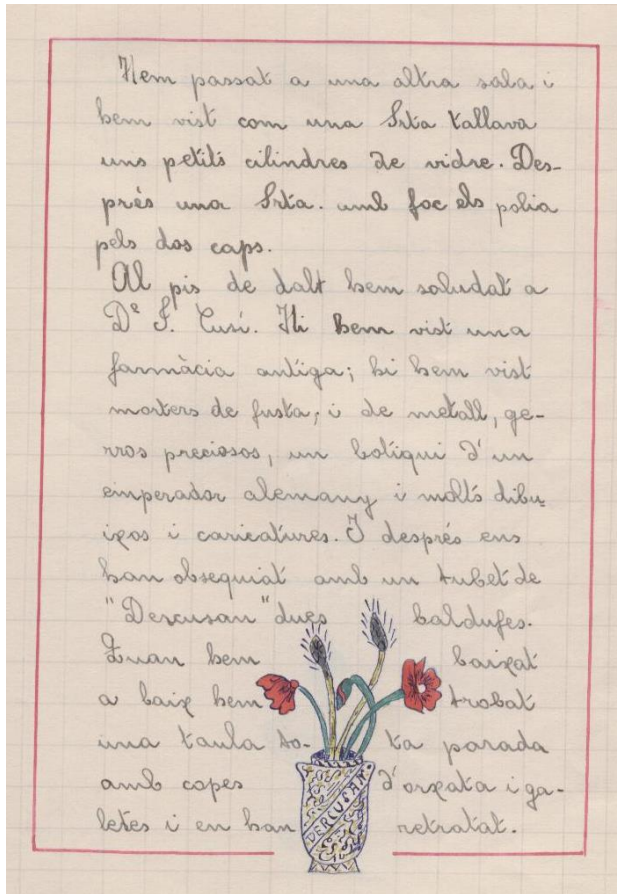 Hem passat a una altra sala i
hem vist com una Srta tallava
uns petits cilindres de vidre. Des-
prés una Srta. amb foc els polia
pels dos caps.
Al pis de dalt hem saludat a
Dº J. Cusí. Hi hem vist una
farmàcia antiga; hi hem vist
morters de fusta, i de metall, ge-
rros preciosos, un botiqui d'un
emperador alemany i molts dibu-
ixos i caricatures. I després ens
han obsequiat amb un tubet de
"Dercusan" dues baldufes.
Quan hem baixat
a baix hem trobat
una taula to- ta parada
amb copes d'orxata i ga-
letes i en han retratat.
DERCUSAN